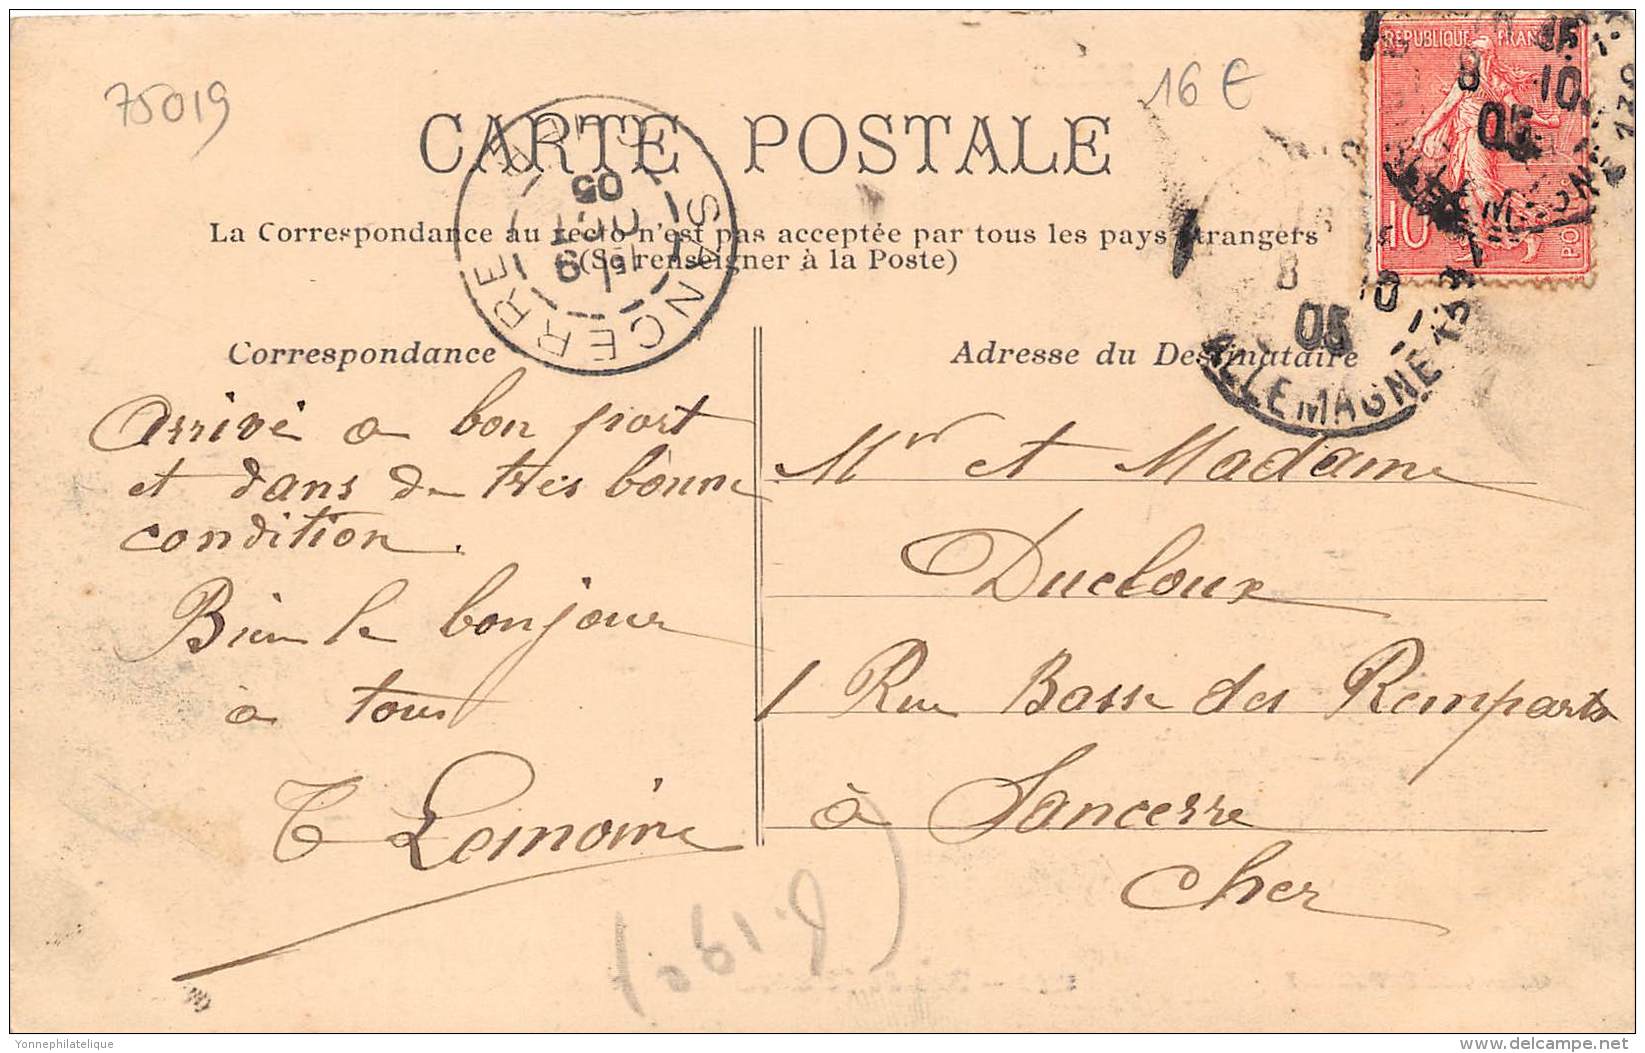 75019
16 €
CARTE POSTALE
La Correspondance au recto n'est pas acceptée par tous les pays étrangers
(Se renseigner à la Poste)
REPUBLIQUE FRANC
10
POS
15
8 10
05
SANCERRE
CHER
9
OCT
05
8 10
05
ALLEMAGNE
Correspondance
Adresse du Destinataire
Arrivé a bon port
et dans de très bonne
condition.
Bien le bonjour
à tous
T Lemoine
Mr et Madame
Ducloux
1 Rue Basse des Remparts
à Sancerre
Cher
Yonnephilatelique
www.delcampe.net